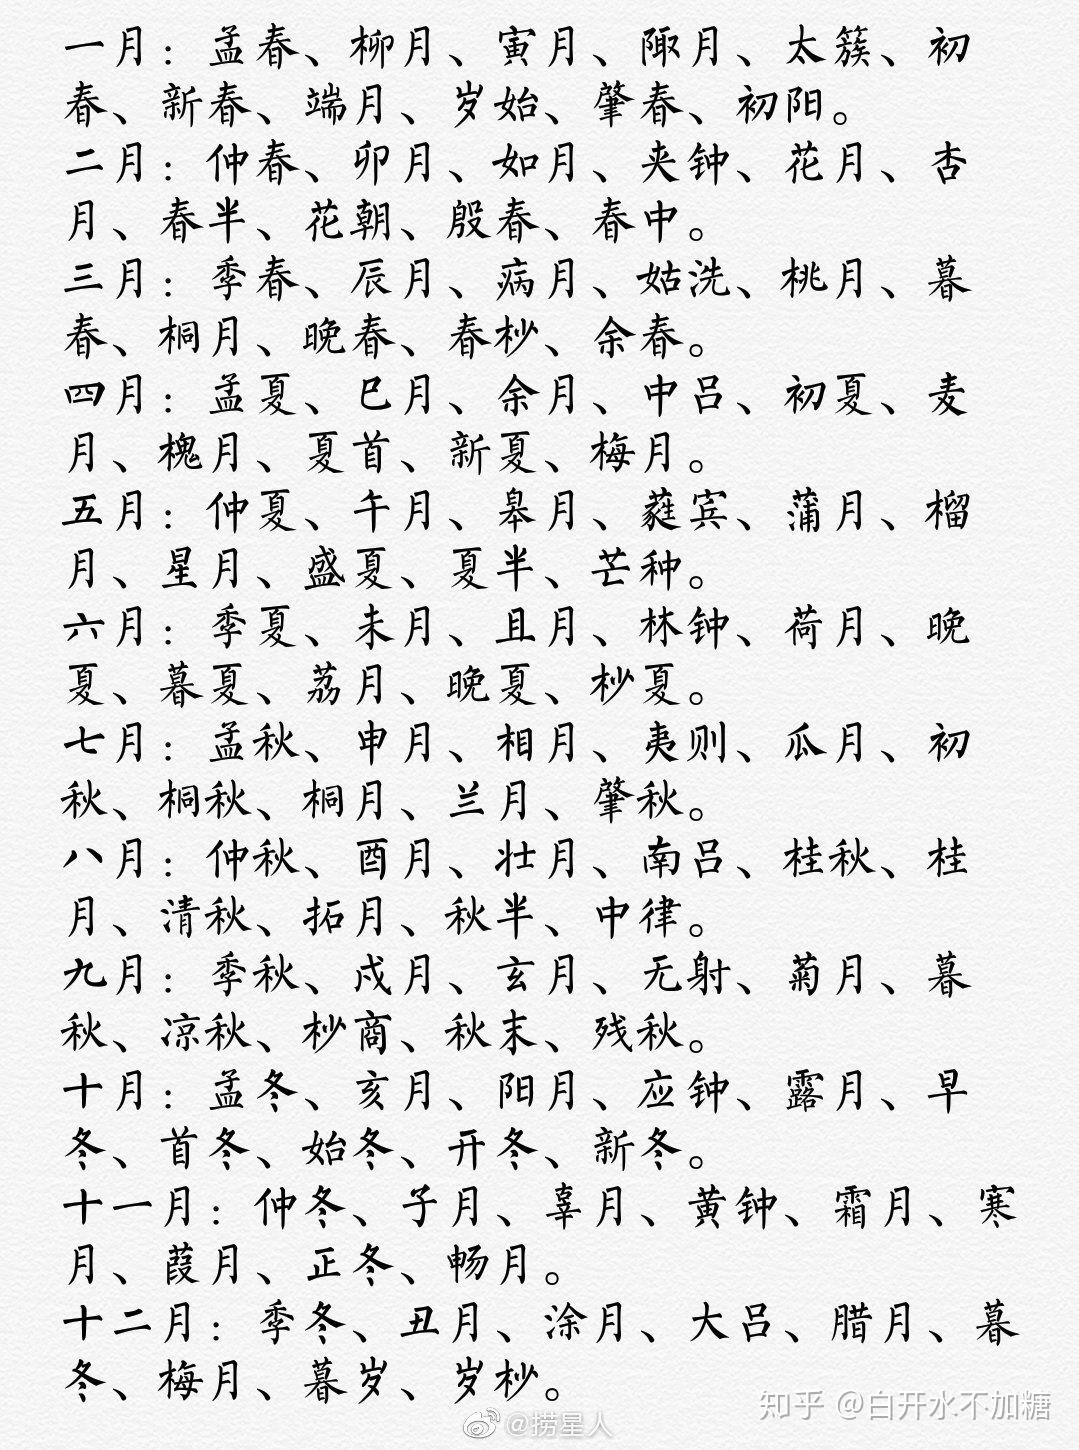 一月：孟春、柳月、寅月、陬月、太簇、初
春、新春、端月、岁始、肇春、初阳。
二月：仲春、卯月、如月、夹钟、花月、杏
月、春半、花朝、殷春、春中。
三月：季春、辰月、病月、姑洗、桃月、暮
春、桐月、晚春、春杪、余春。
四月：孟夏、巳月、余月、中吕、初夏、麦
月、槐月、夏首、新夏、梅月。
五月：仲夏、午月、皋月、蕤宾、蒲月、榴
月、星月、盛夏、夏半、芒种。
六月：季夏、未月、且月、林钟、荷月、晚
夏、暮夏、荔月、晚夏、杪夏。
七月：孟秋、申月、相月、夷则、瓜月、初
秋、桐秋、桐月、兰月、肇秋。
八月：仲秋、酉月、壮月、南吕、桂秋、桂
月、清秋、拓月、秋半、中律。
九月：季秋、戌月、玄月、无射、菊月、暮
秋、凉秋、杪商、秋末、残秋。
十月：孟冬、亥月、阳月、应钟、露月、早
冬、首冬、始冬、开冬、新冬。
十一月：仲冬、子月、辜月、黄钟、霜月、寒
月、葭月、正冬、畅月。
十二月：季冬、丑月、涂月、大吕、腊月、暮
冬、梅月、暮岁、岁杪。
知乎 @白开水不加糖
@捞星人